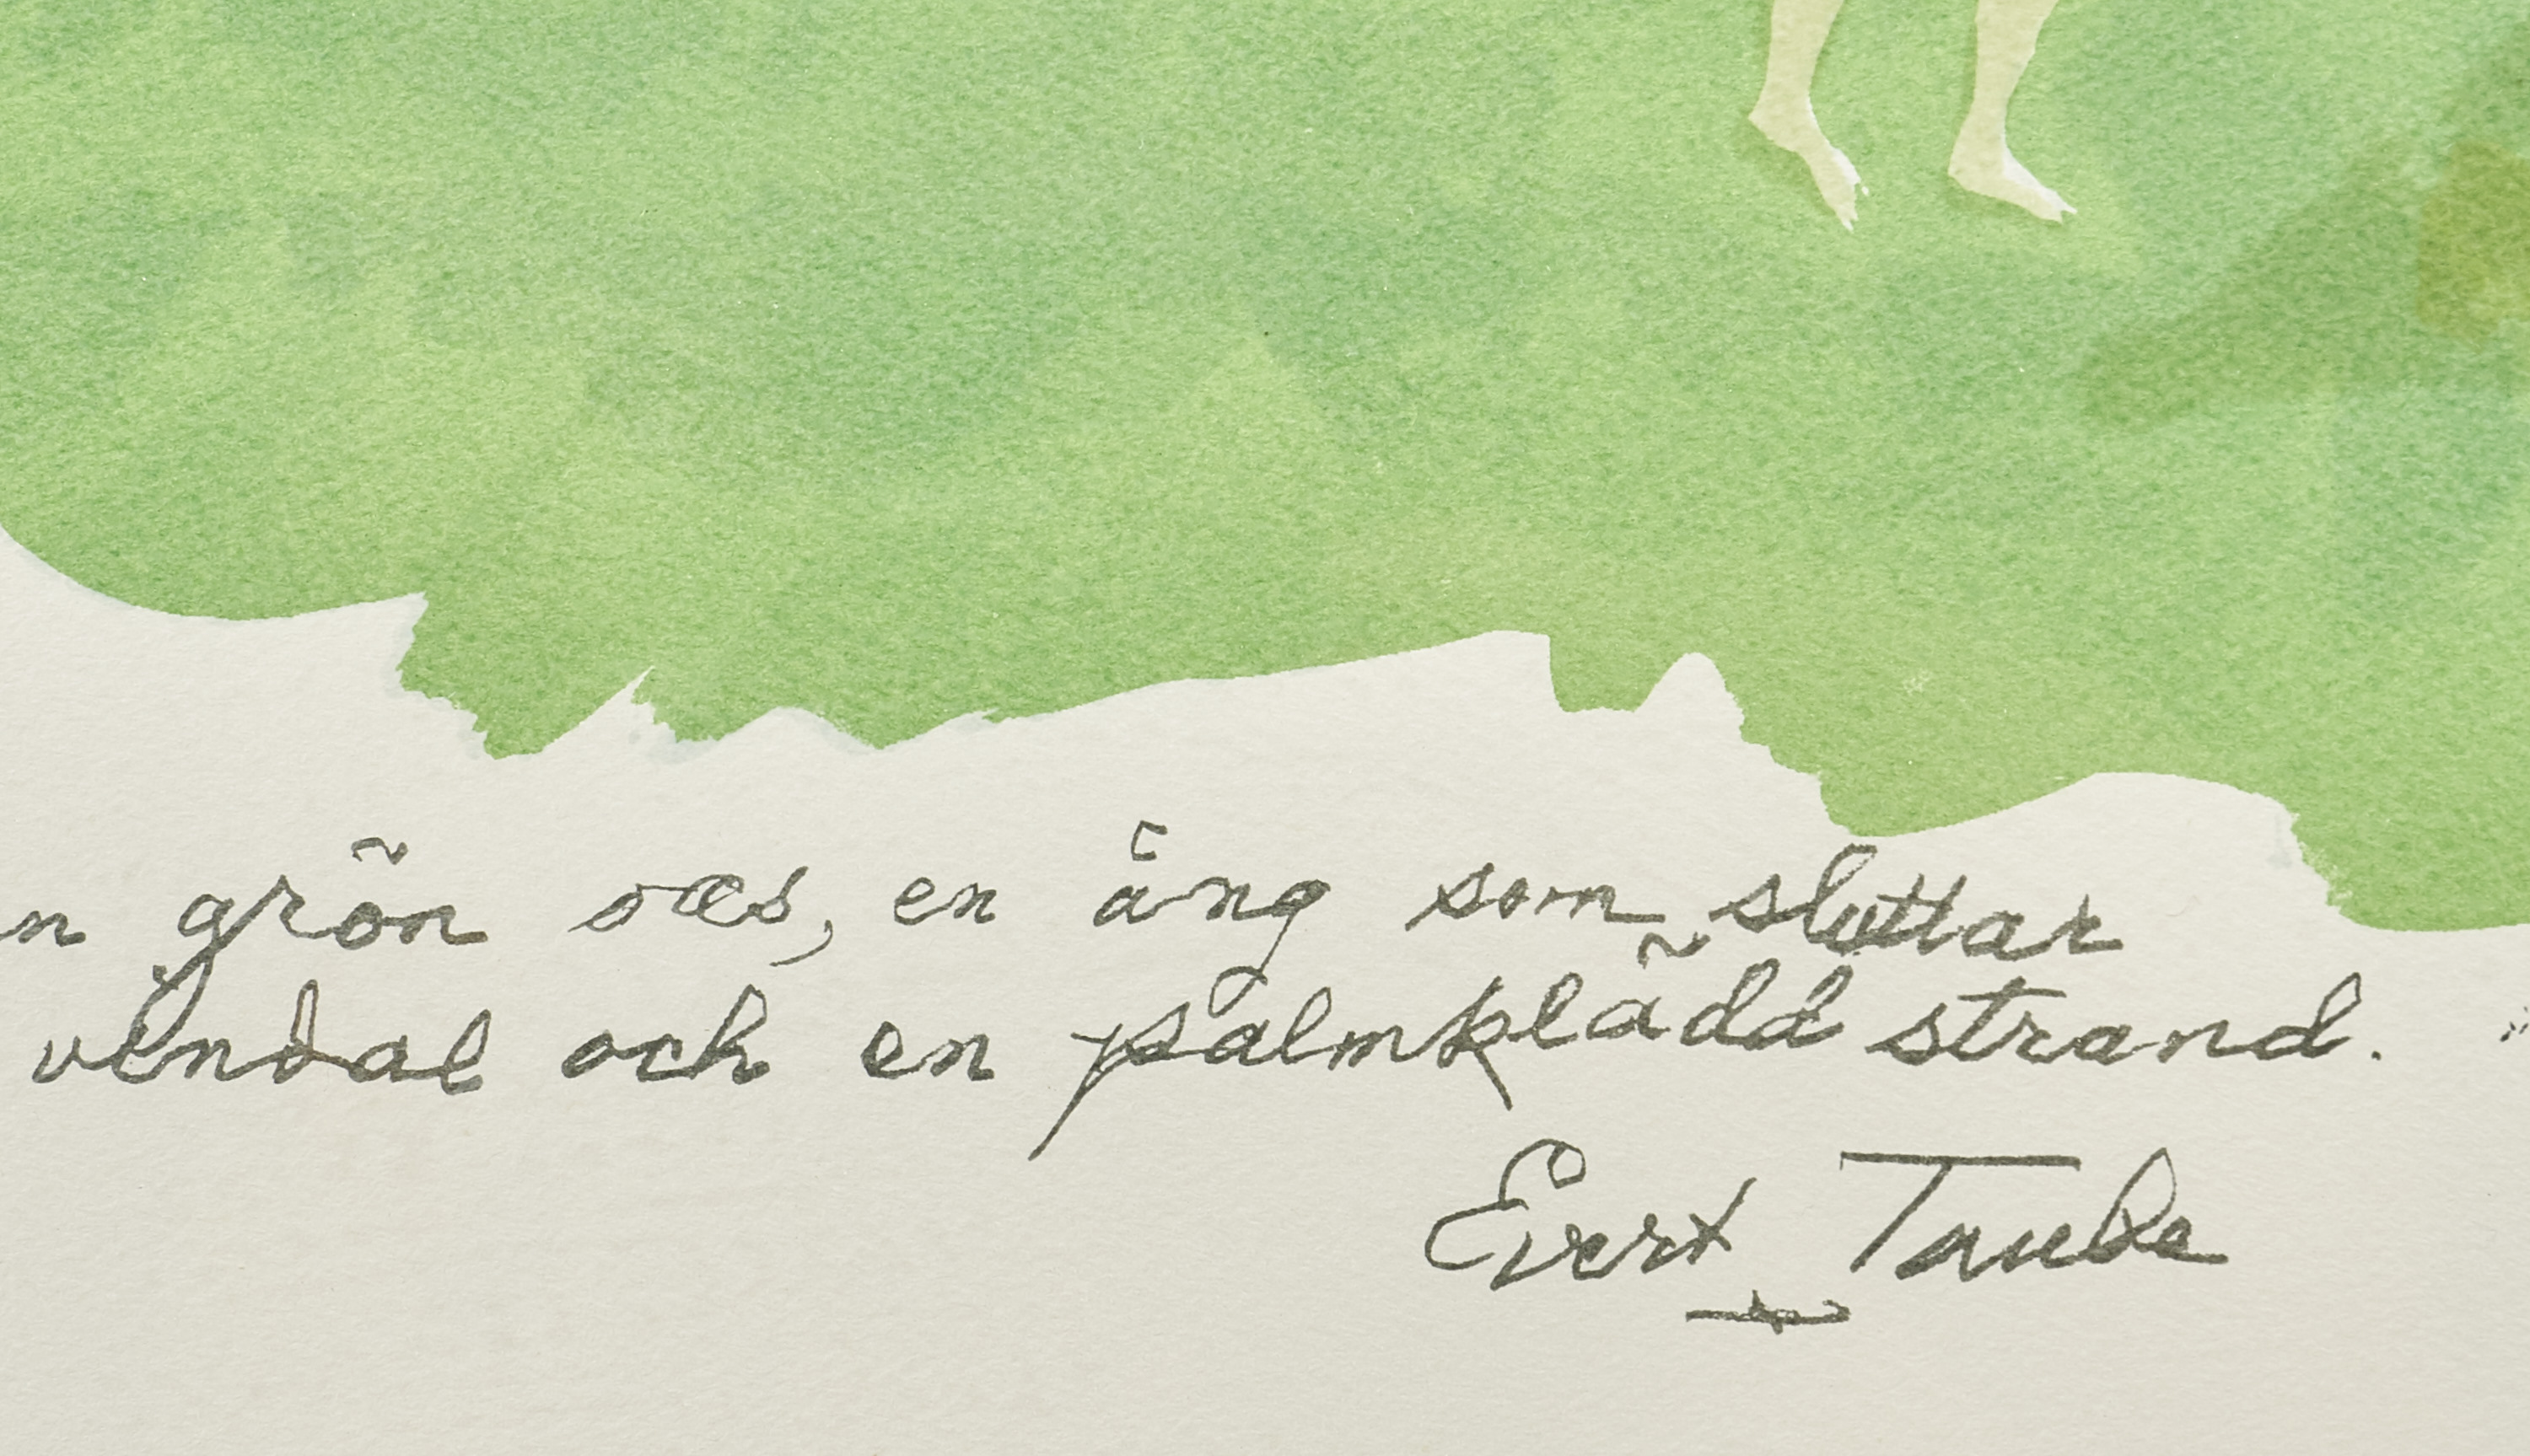 n grön oas, en äng som sluttar
vindal och en palmklädd strand.
Evert Taube